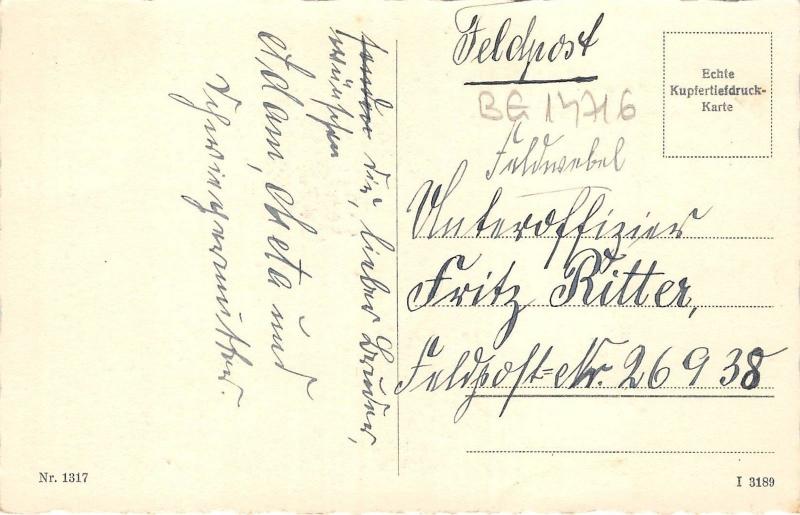 senden
wünschen
dir, lieber Bruder,
Adam, Meta und
Schwiegermutter.
Feldpost
Echte
Kupfertiefdruck-
Karte
BG 14716
Feldwebel
Unteroffizier
Fritz Ritter,
Feldpost=Nr. 26938
Nr. 1317
I 3189